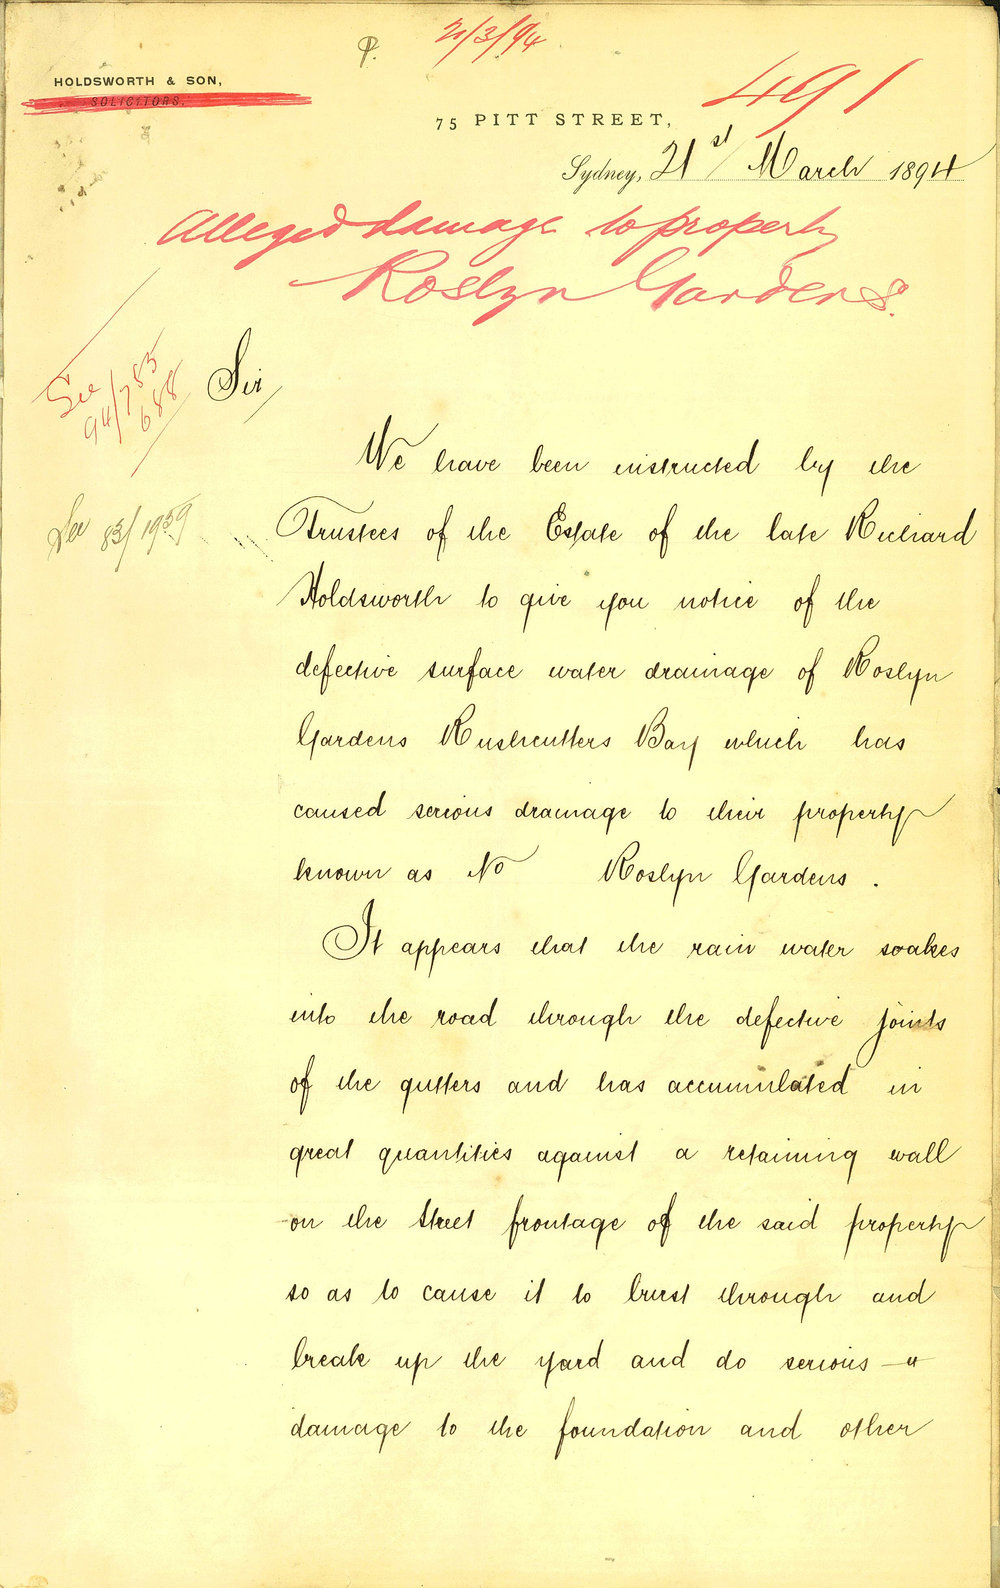 P.
21/3/94
HOLDSWORTH & SON,
SOLICITORS.
491
75 PITT STREET,
Sydney, 21st March 1894
Alleged damage to property
Roslyn Gardens.
See
94/783
688
See 83/1939
Sir
We have been instructed by the
Trustees of the Estate of the late Richard
Holdsworth to give you notice of the
defective surface water drainage of Roslyn
Gardens Rushcutters Bay which has
caused serious drainage to their property
known as No Roslyn Gardens.
It appears that the rain water soakes
into the road through the defective joints
of the gutters and has accumulated in
great quantities against a retaining wall
on the street frontage of the said property
so as to cause it to brust through and
break up the yard and do serious
damage to the foundation and other